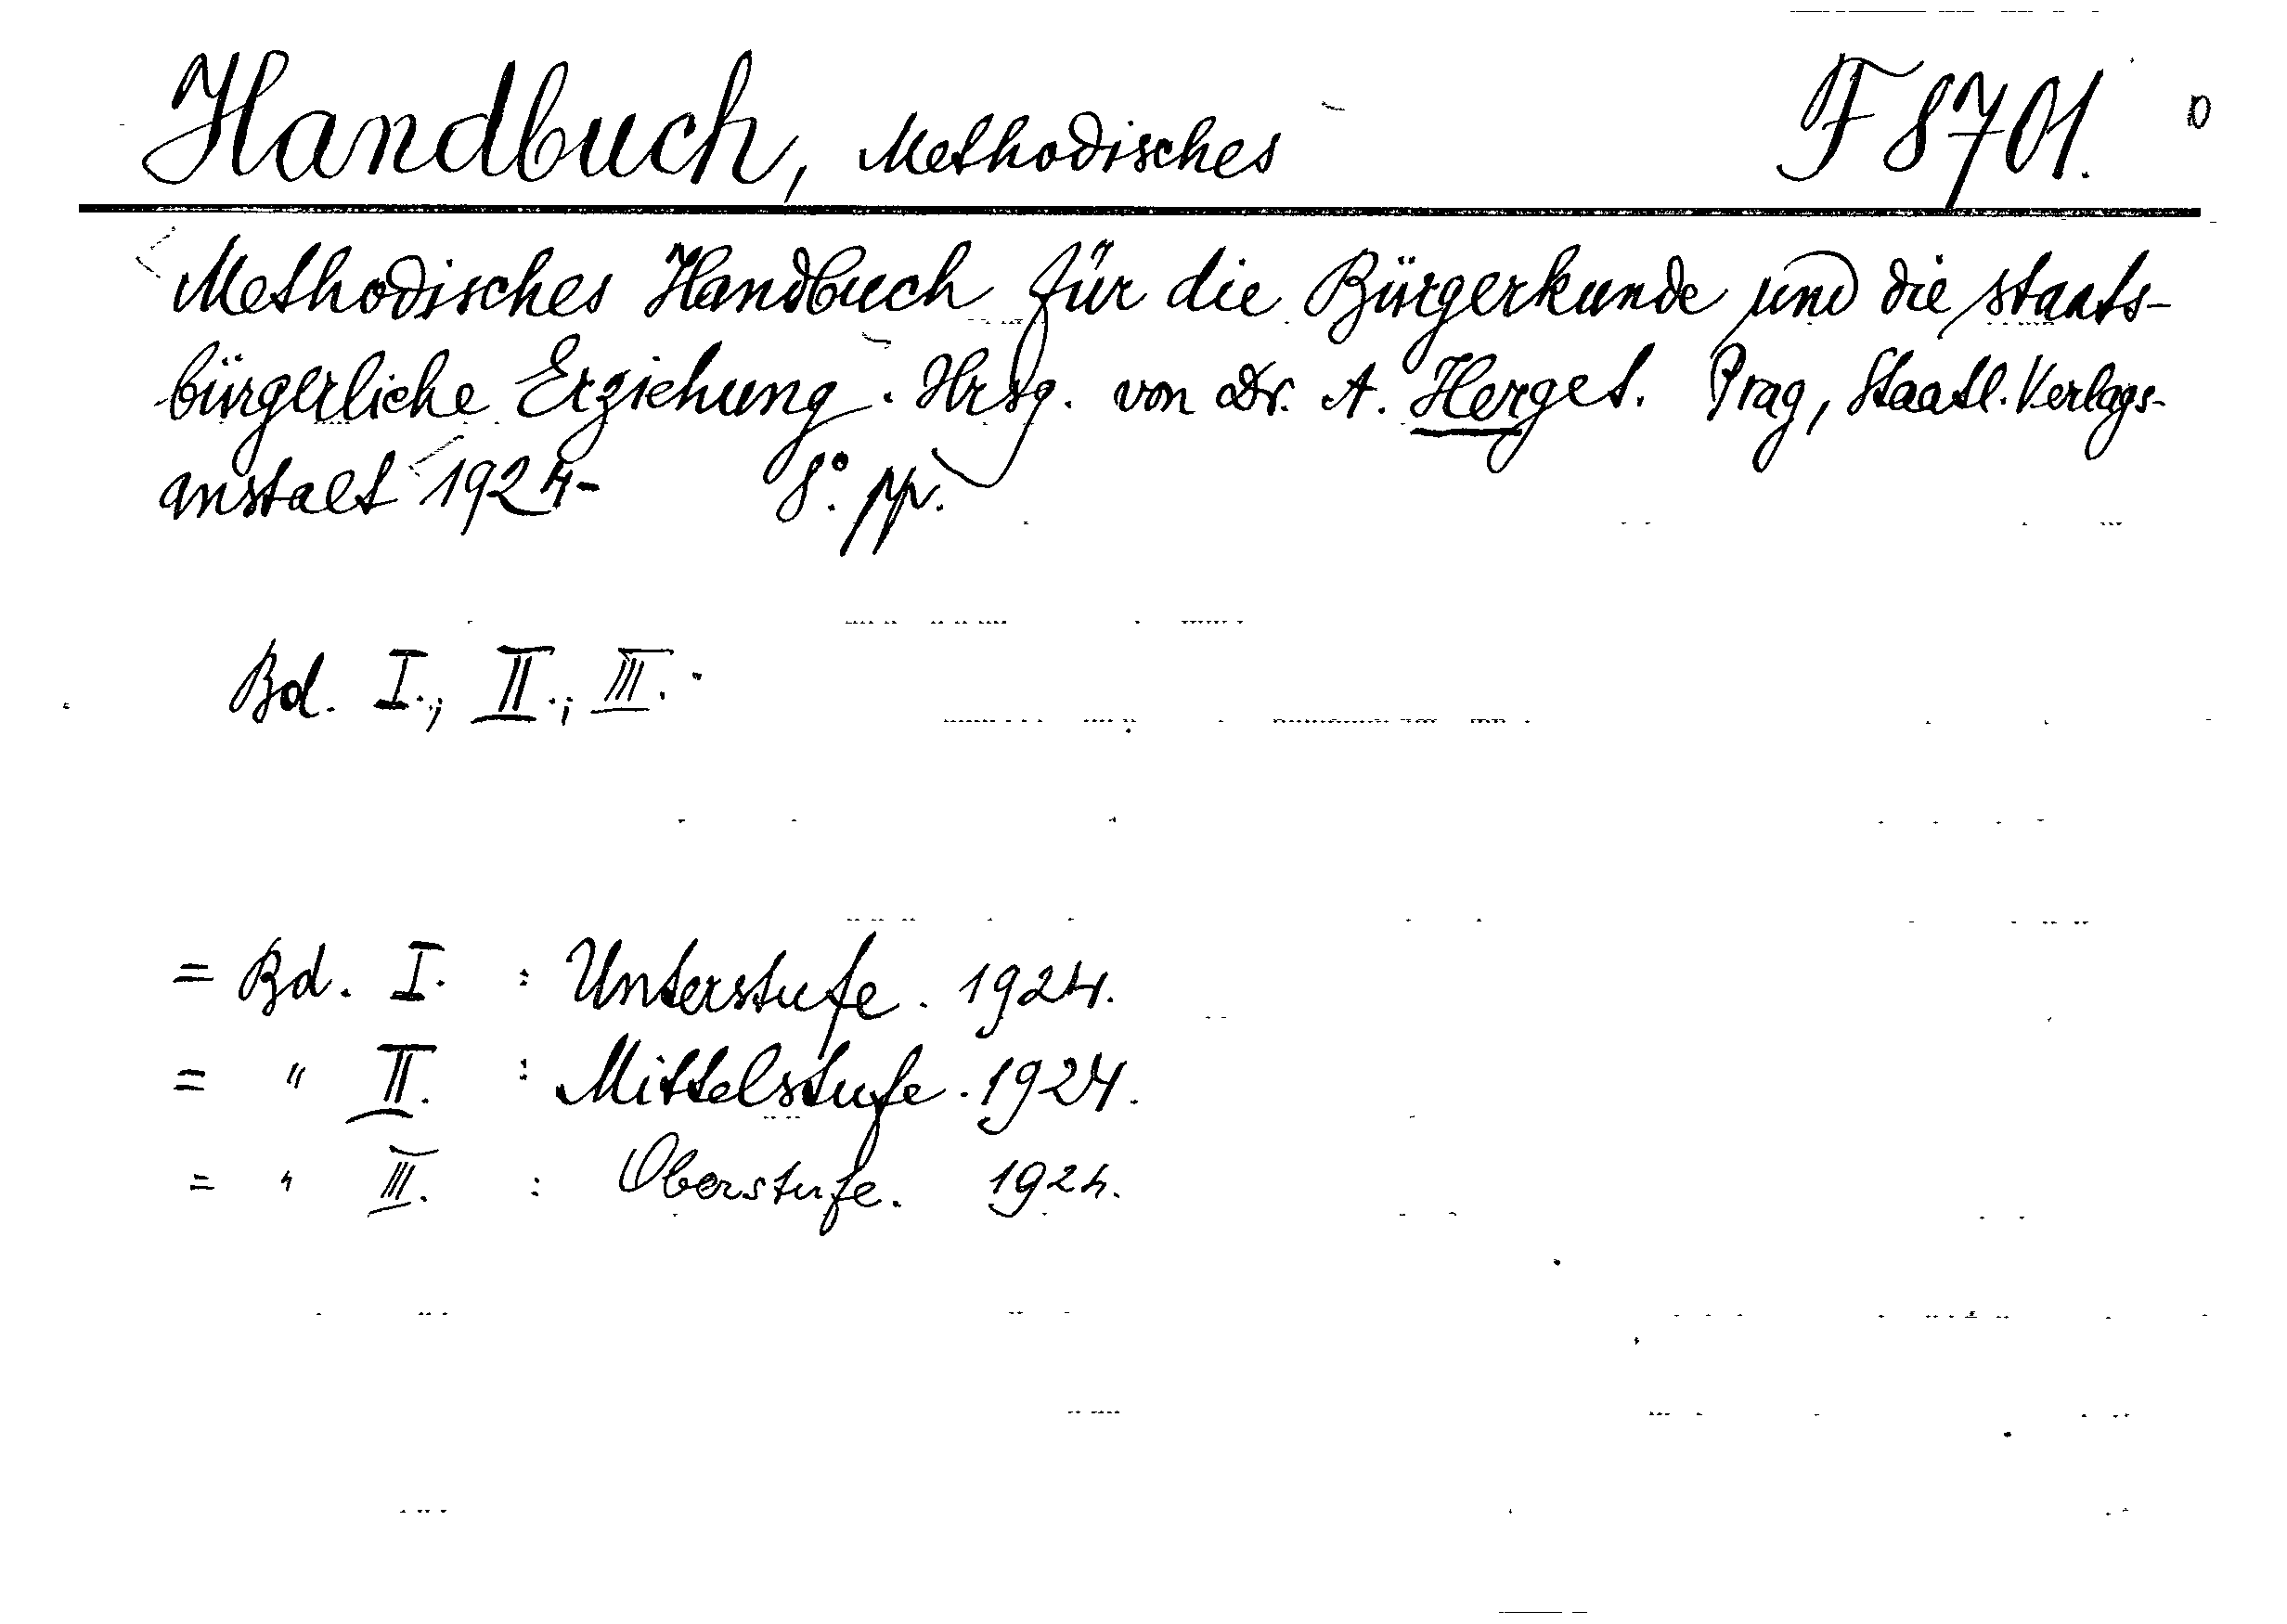 Handbuch, Methodisches F 8701.
Methodisches Handbuch für die Bürgerkunde und die staats-
bürgerliche Erziehung. Hrsg. von Dr. A. Herget. Prag, Staatl. Verlags-
anstalt 1924- 8°. pp.
Bd. I., II., III.
= Bd. I. : Unterstufe. 1924.
= " II. : Mittelstufe. 1924.
= " III. : Oberstufe. 1924.